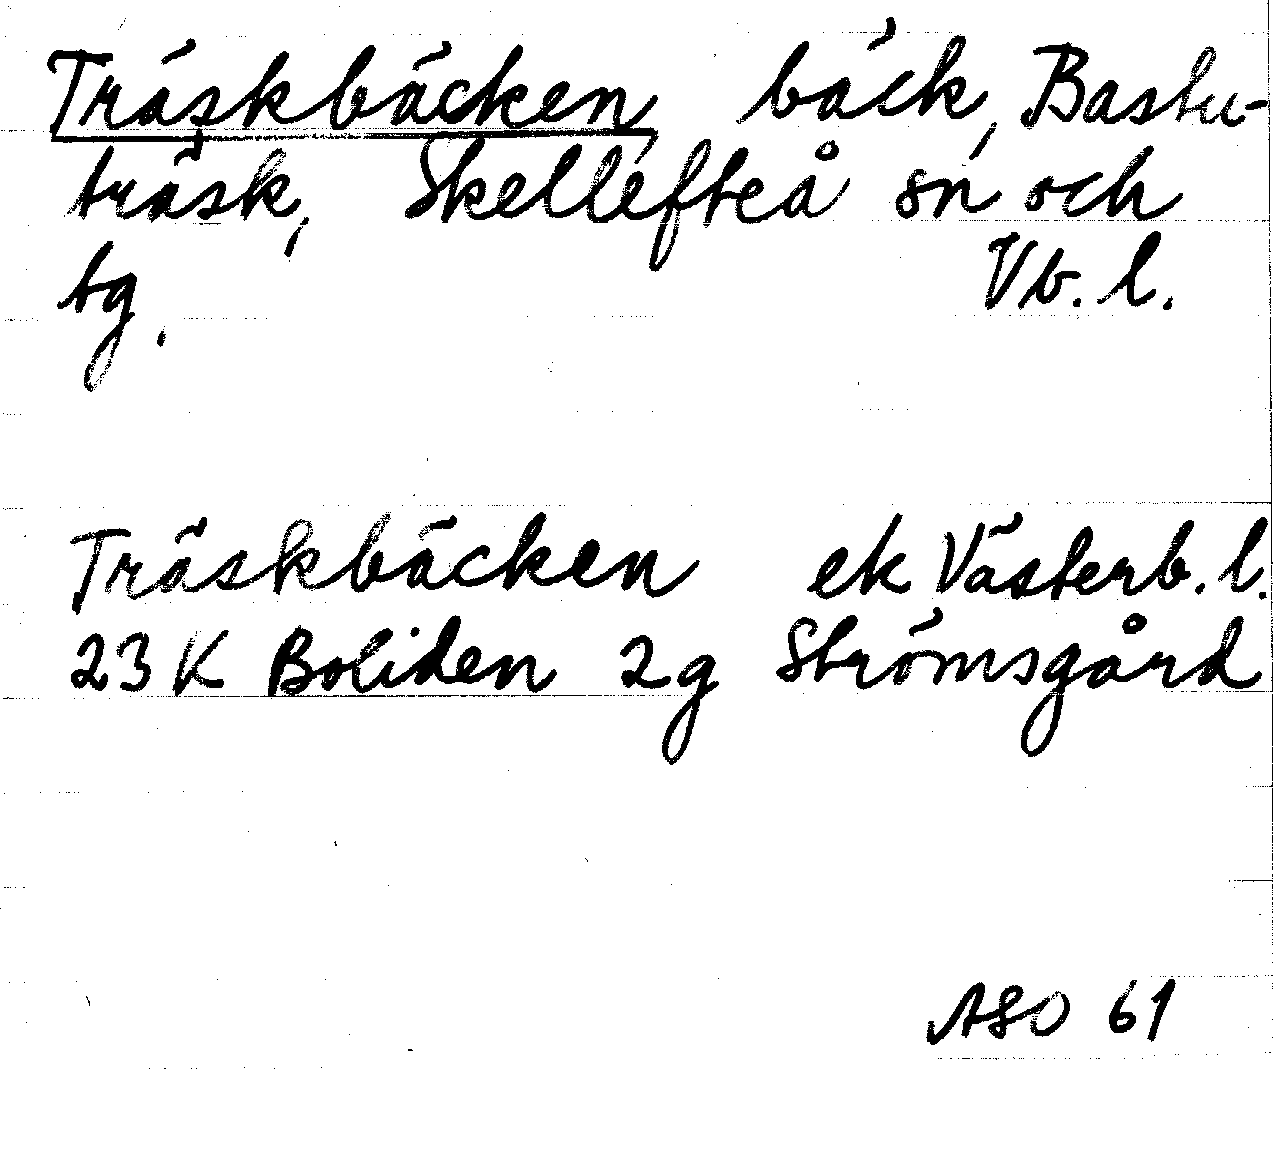 Träskbäcken bäck, Bastu-
träsk, Skellefteå sn och
tg. Vb. l.
Träskbäcken ek Västerb. l.
23 K Boliden 2g Strömsgård
ASO 61